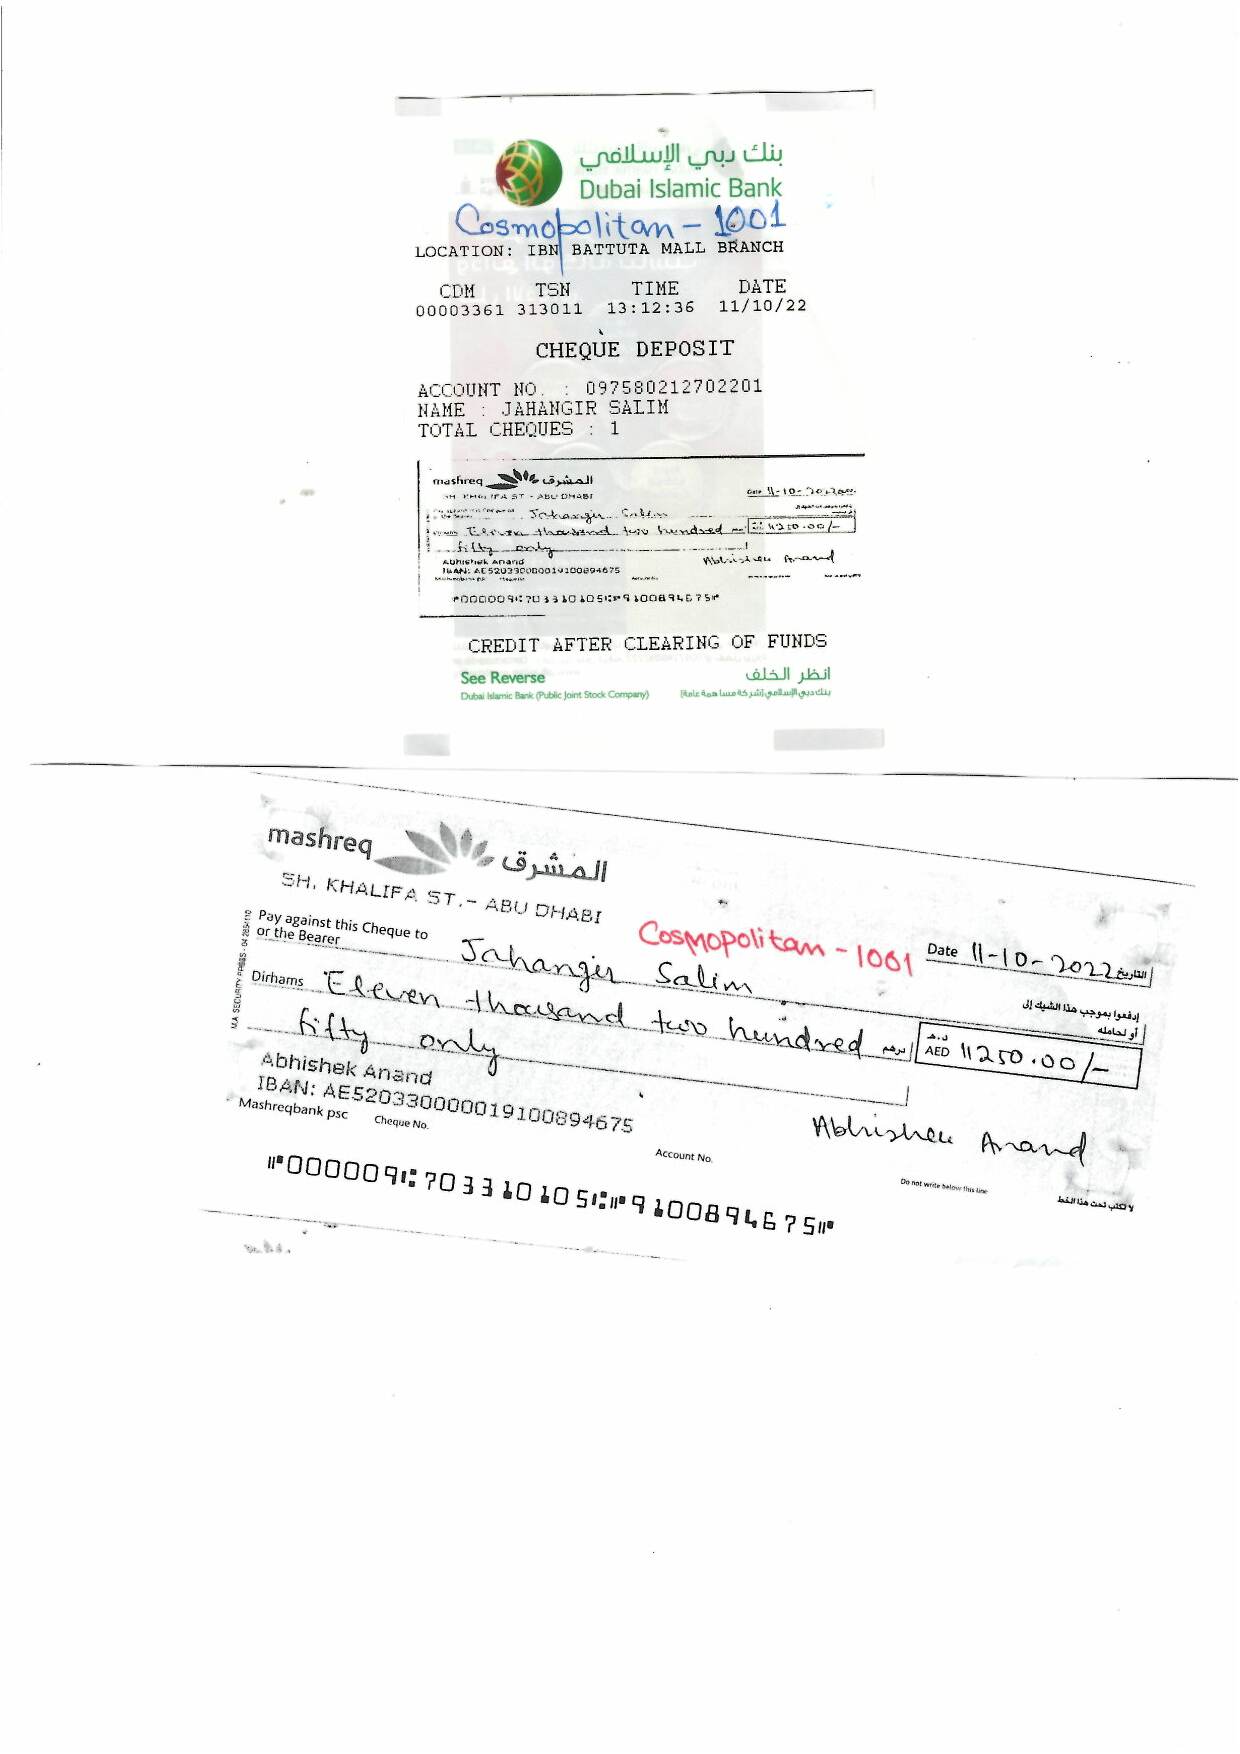 بنك دبي الإسلامي
Dubai Islamic Bank
Cosmopolitan - 1001
LOCATION: IBN BATTUTA MALL BRANCH
CDM TSN TIME DATE
00003361 313011 13:12:36 11/10/22
CHEQUE DEPOSIT
ACCOUNT NO. : 097580212702201
NAME : JAHANGIR SALIM
TOTAL CHEQUES : 1
mashreq المشرق
SH. KHALIFA ST - ABU DHABI
Date 11-10-2022
Jahangir Salim
Eleven thousand two hundred 11250.00/-
fifty only
Abhishek Anand
Abhishek Anand
IBAN: AE520330000019100894675
⑈000009⑆703310105⑆⑈9100894675⑈
CREDIT AFTER CLEARING OF FUNDS
See Reverse انظر الخلف
Dubai Islamic Bank (Public Joint Stock Company) بنك دبي الإسلامي (شركة مساهمة عامة)
mashreq المشرق
SH. KHALIFA ST.- ABU DHABI
Cosmopolitan - 1001
Date 11-10-2022 التاريخ
Pay against this Cheque to
or the Bearer
Jahangir Salim
إدفعوا بموجب هذا الشيك إلى
أو لحامله
Dirhams Eleven thousand two hundred درهم
د.إ. AED 11250.00/-
fifty only
Abhishek Anand
IBAN: AE520330000019100894675
Mashreqbank psc Cheque No. Account No.
Abhishek Anand
Do not write below this line لا تكتب تحت هذا الخط
⑈000009⑆703310105⑆⑈9100894675⑈